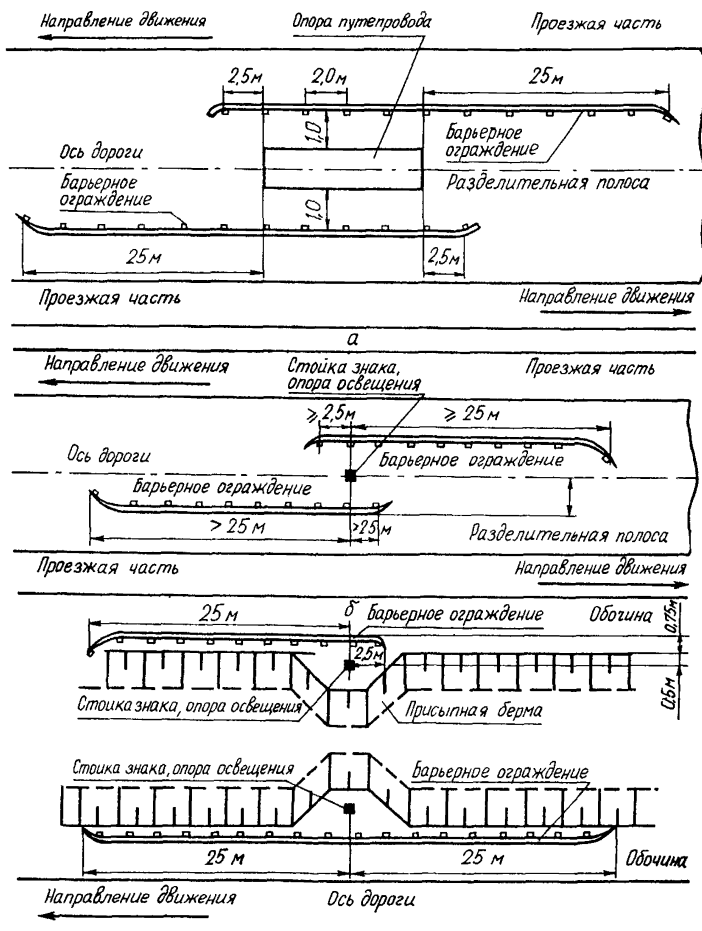 Направление движения
Опора путепровода
Проезжая часть
2,5м
2,0м
25м
1,0
Барьерное
ограждение
Ось дороги
Барьерное
ограждение
Разделительная полоса
1,0
25м
2,5м
Проезжая часть
Направление движения
а
Направление движения
Стойка знака,
опора освещения
Проезжая часть
≥2,5м
≥25м
Ось дороги
Барьерное ограждение
Барьерное ограждение
>25м
>25м
Разделительная полоса
Проезжая часть
Направление движения
25м
б
Барьерное ограждение
Обочина
0,75м
2,5м
Стоика знака, опора освещения
Присыпная берма
0,5м
Стоика знака, опора освещения
Барьерное ограждение
25м
25м
Обочина
Направление движения
Ось дороги